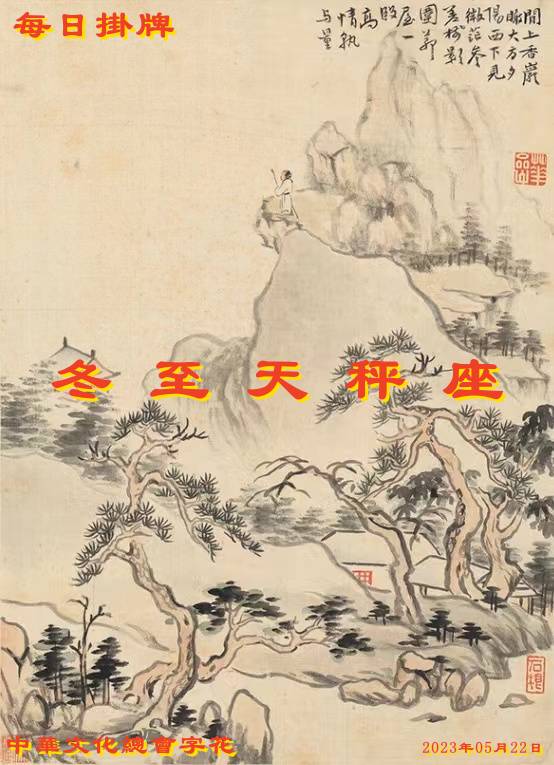 每日掛牌
閒上香巖
瞰大方夕
陽西下見
微茫參
差樹影
團茆
屋一
段
高
情孰
与量
冬至天秤座
中華文化總會字花
2023年05月22日